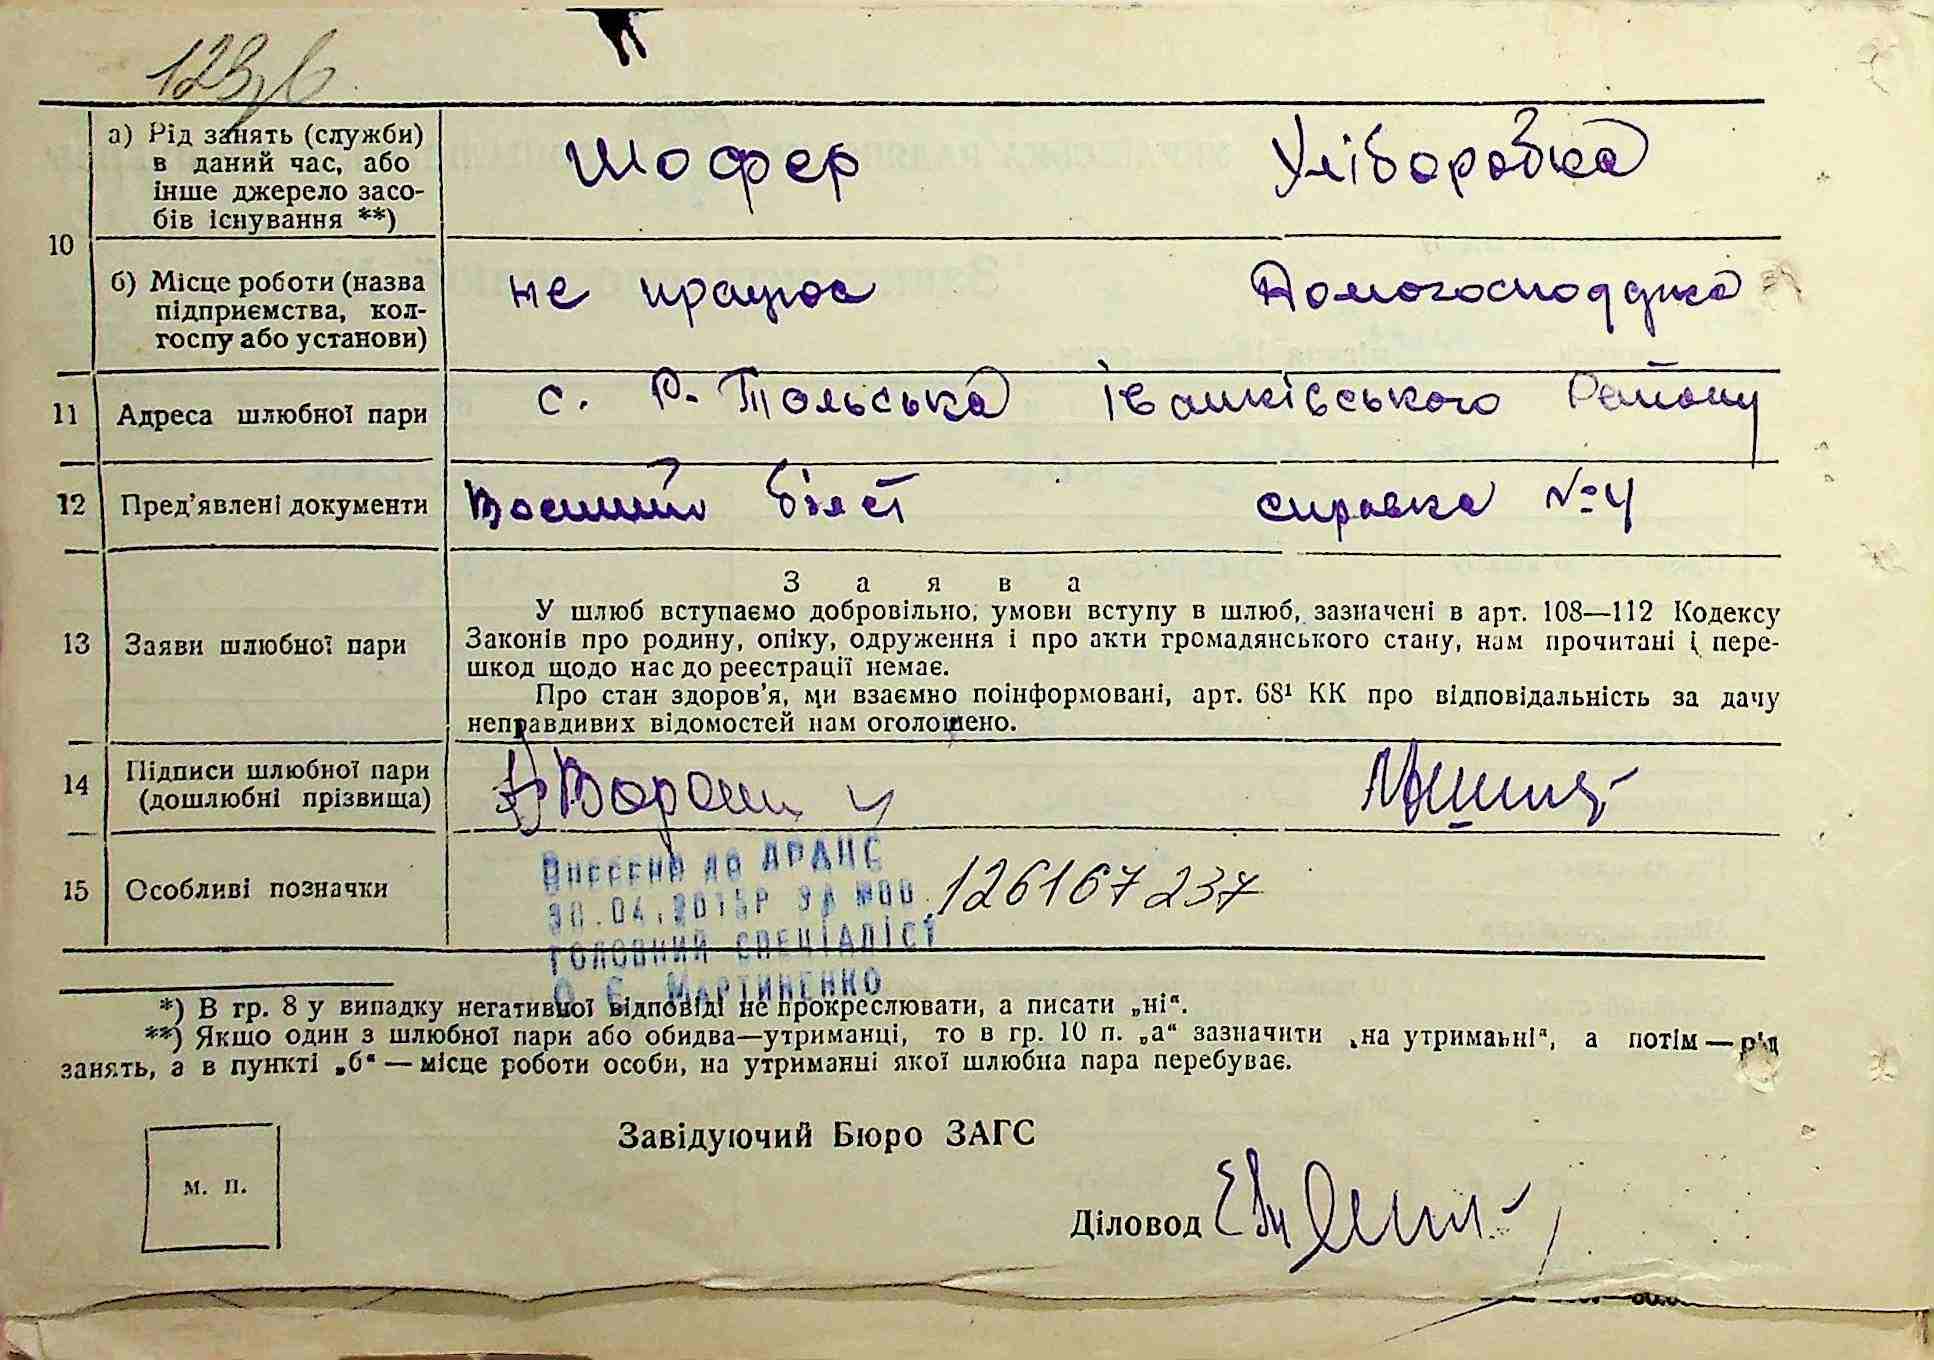 123зв
а) Рід занять (служби)
в даний час, або
інше джерело засо-
бів існування **)
Шофер
Хліборобка
10
б) Місце роботи (назва
підприємства, кол-
госпу або установи)
не працює
Домогосподарка
11
Адреса шлюбної пари
с. Р. Тальська Іванківського Району
12
Пред’явлені документи
Воєнний білєт
справка №4
13
Заяви шлюбної пари
Заява
У шлюб вступаємо добровільно, умови вступу в шлюб, зазначені в арт. 108—112 Кодексу
Законів про родину, опіку, одруження і про акти громадянського стану, нам прочитані і пере-
шкод щодо нас до реєстрації немає.
Про стан здоров’я, ми взаємно поінформовані, арт. 68¹ КК про відповідальність за дачу
неправдивих відомостей нам оголошено.
14
Підписи шлюбної пари
(дошлюбні прізвища)
15
Особливі позначки
Внесено до ДРАЦС
30.04.2015р за №00 126167237
Головний спеціаліст
О Є Мартиненко
*) В гр. 8 у випадку негативної відповіді не прокреслювати, а писати „ні“.
**) Якщо один з шлюбної пари або обидва—утриманці, то в гр. 10 п. „а“ зазначити „на утриманні“, а потім — рід
занять, а в пункті „б“ — місце роботи особи, на утриманні якої шлюбна пара перебуває.
Завідуючий Бюро ЗАГС
м. п.
Діловод